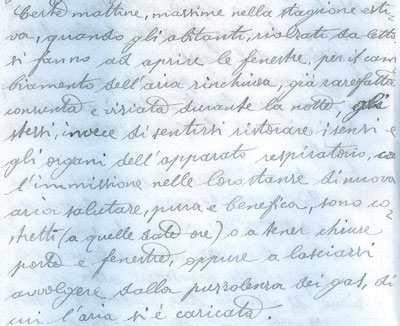 Certe mattine, massime nella stagione esti-
va, quando gli abitanti, rialzati da letto
si fanno ad aprire le fenestre, per il cam
biamento dell'aria rinchiusa, già rarefatta
consunta e viziata durante la notte gli
stessi, invece di sentirsi ristorare i sensi e
gli organi dell'apparato respiratorio, con
l'immissione nelle loro stanze di nuova
aria salutare, pura e benefica, sono co-
stretti (a quelle date ore) o a tener chiuse
porte e fenestre, oppure a lasciarsi
avvolgere dalla puzzolenza dei gas, di
cui l'aria si è caricata.